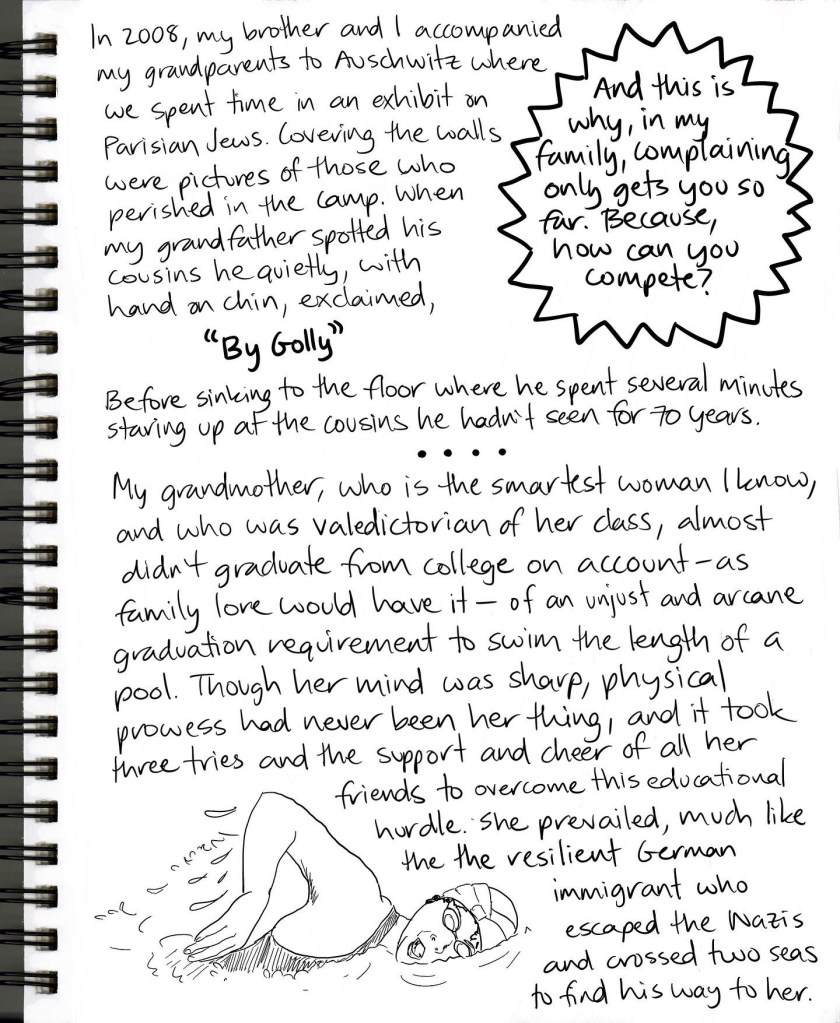 In 2008, my brother and I accompanied
my grandparents to Auschwitz where
we spent time in an exhibit on
Parisian Jews. Covering the walls
were pictures of those who
perished in the camp. When
my grandfather spotted his
cousins he quietly, with
hand on chin, exclaimed,
"By Golly"
And this is
why, in my
family, complaining
only gets you so
far. Because,
how can you
compete?
Before sinking to the floor where he spent several minutes
staring up at the cousins he hadn't seen for 70 years.
My grandmother, who is the smartest woman I know,
and who was valedictorian of her class, almost
didn't graduate from college on account—as
family lore would have it— of an unjust and arcane
graduation requirement to swim the length of a
pool. Though her mind was sharp, physical
prowess had never been her thing, and it took
three tries and the support and cheer of all her
friends to overcome this educational
hurdle. She prevailed, much like
the the resilient German
immigrant who
escaped the Nazis
and crossed two seas
to find his way to her.